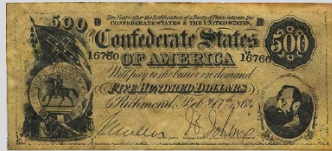 500
Two Years after the Ratification of a Treaty of Peace between the
CONFEDERATE STATES & THE UNITED STATES,
Confederate States
500
16760
OF AMERICA
16760
Will pay to the bearer on demand
FIVE HUNDRED DOLLARS
Richmond, Feb 17th 1864